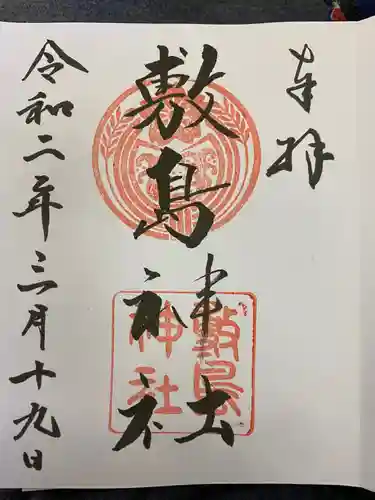 奉拝
敷島神社
敷島
神社
令和二年三月十九日